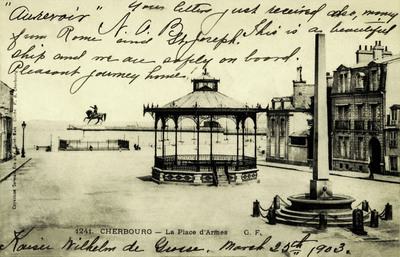 "Aurevoir" Your letter just received also, money
from Rome N.O.B. This is a beautiful
and St. Joseph.
ship and we are safely on board.
Pleasant journey home.
1241. CHERBOURG — La Place d'Armes G. F.
Kaiser Wilhelm de Grosse. March 25th 1903.